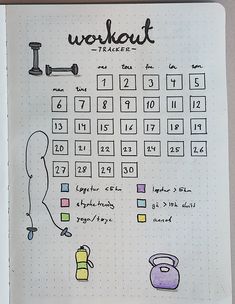 workout
-TRACKER-
ons tors fre lør søn
1 2 3 4 5
man tirs
6 7 8 9 10 11 12
13 14 15 16 17 18 19
20 21 22 23 24 25 26
27 28 29 30
løpetur <5km løpetur >5km
gå >10k
yoga/tøye annet